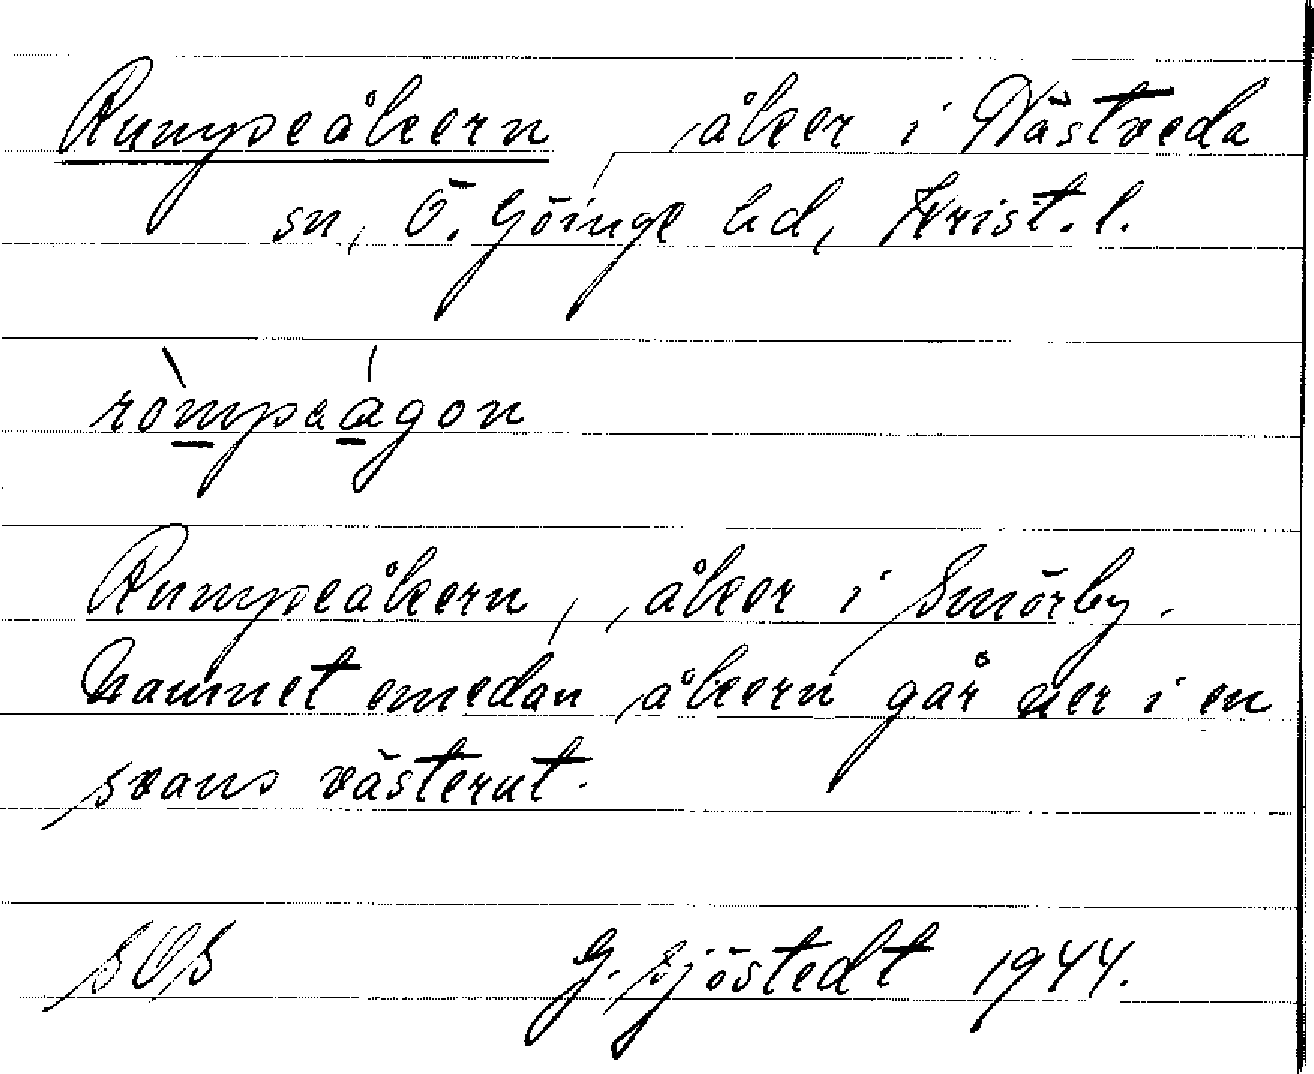 Rumpeåkern åker i Nästveda
sn, Ö. Göinge hd, Krist. l.
ròmpaágon
Rumpeåkern, åker i Smörby.
Namnet emedan åkern går ner i en
svans västerut.
SOS G. Sjöstedt 1944.